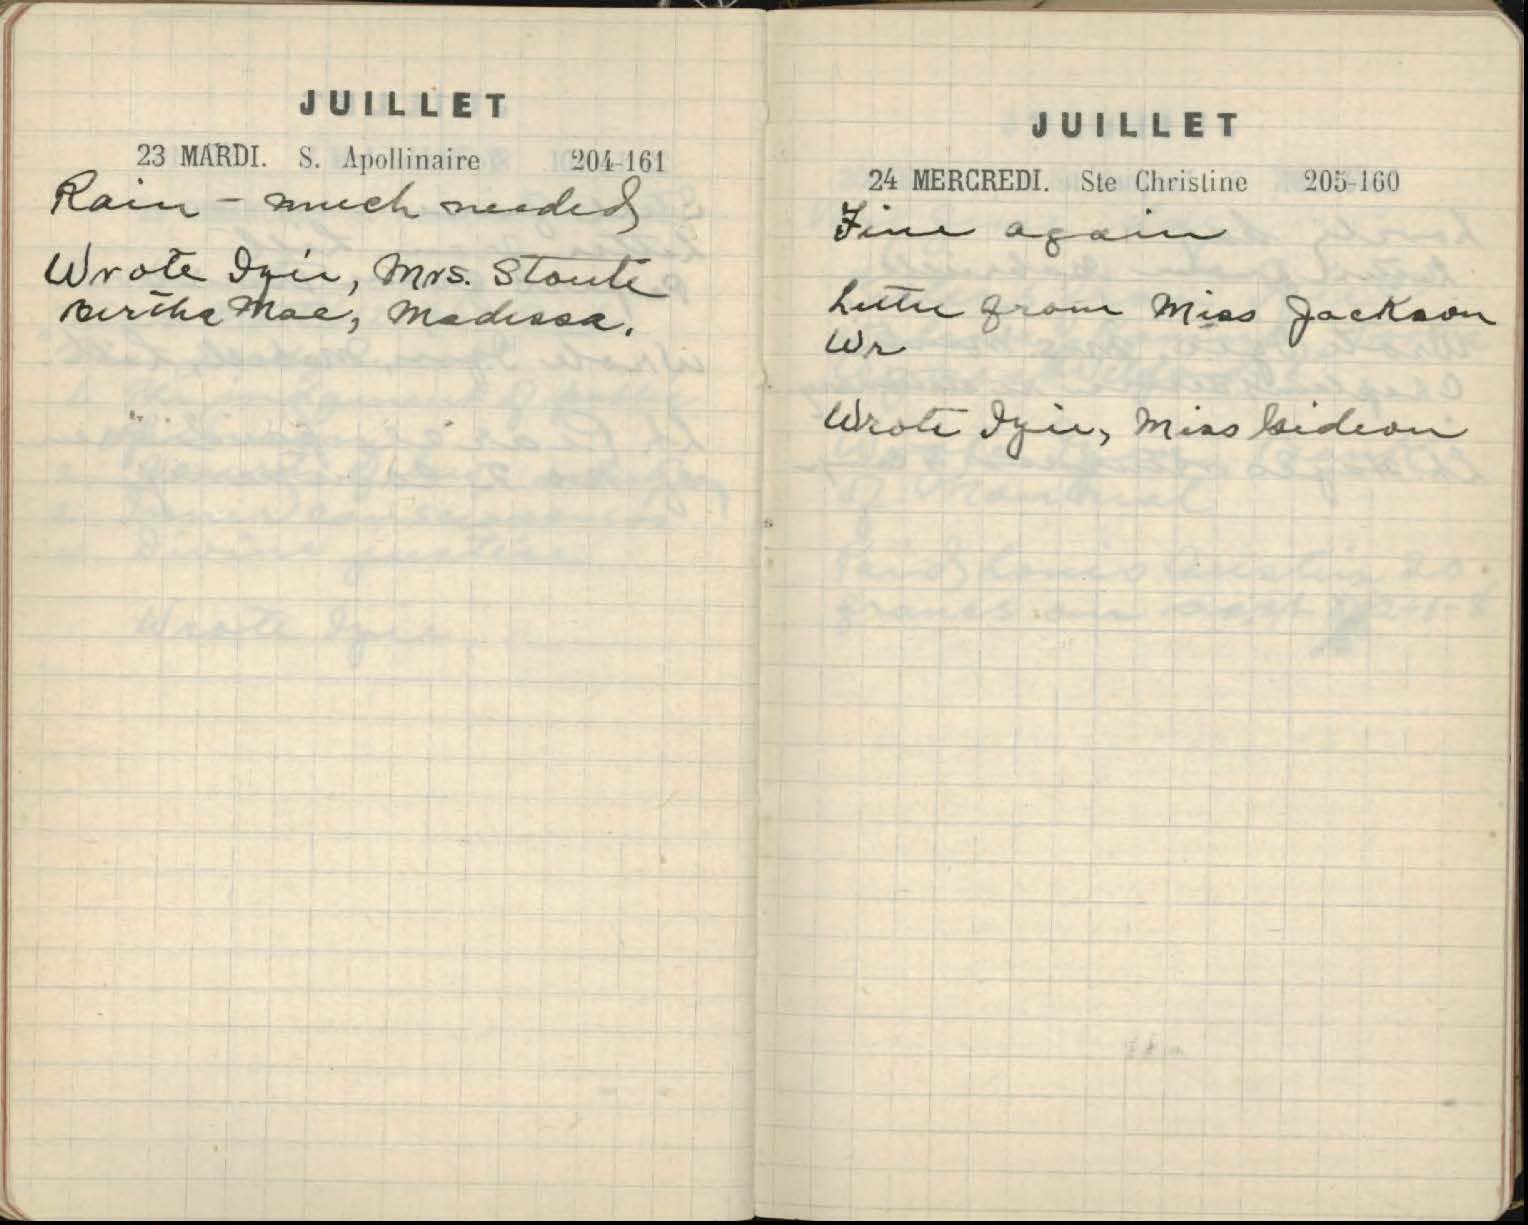 JUILLET
23 MARDI. S. Apollinaire 204-161
Rain - much needed
Wrote Izie, Mrs. Stoute
Bertha Mae, Madessa.
JUILLET
24 MERCREDI. Ste Christine 205-160
Fine again
Letter from Miss Jackson
Wr
Wrote Izie, Miss Gideon